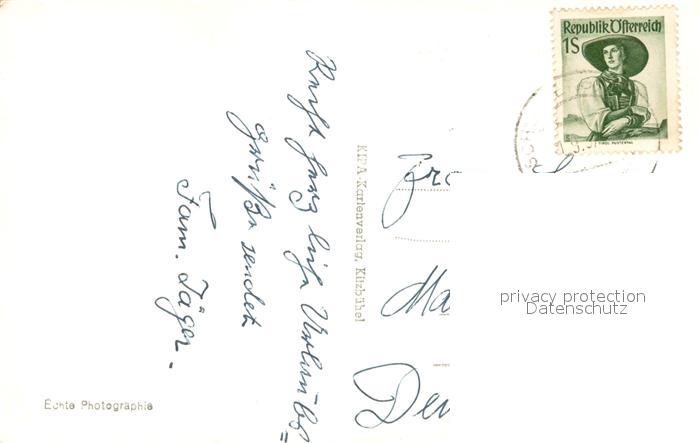 Republik Österreich
1S
TIROL PUSTERTAL
Recht herzliche Urlaubs=
grüße sendet
Fam. Jäger.
KIPA-Kartenverlag, Kitzbühel
privacy protection
Datenschutz
Echte Photographie